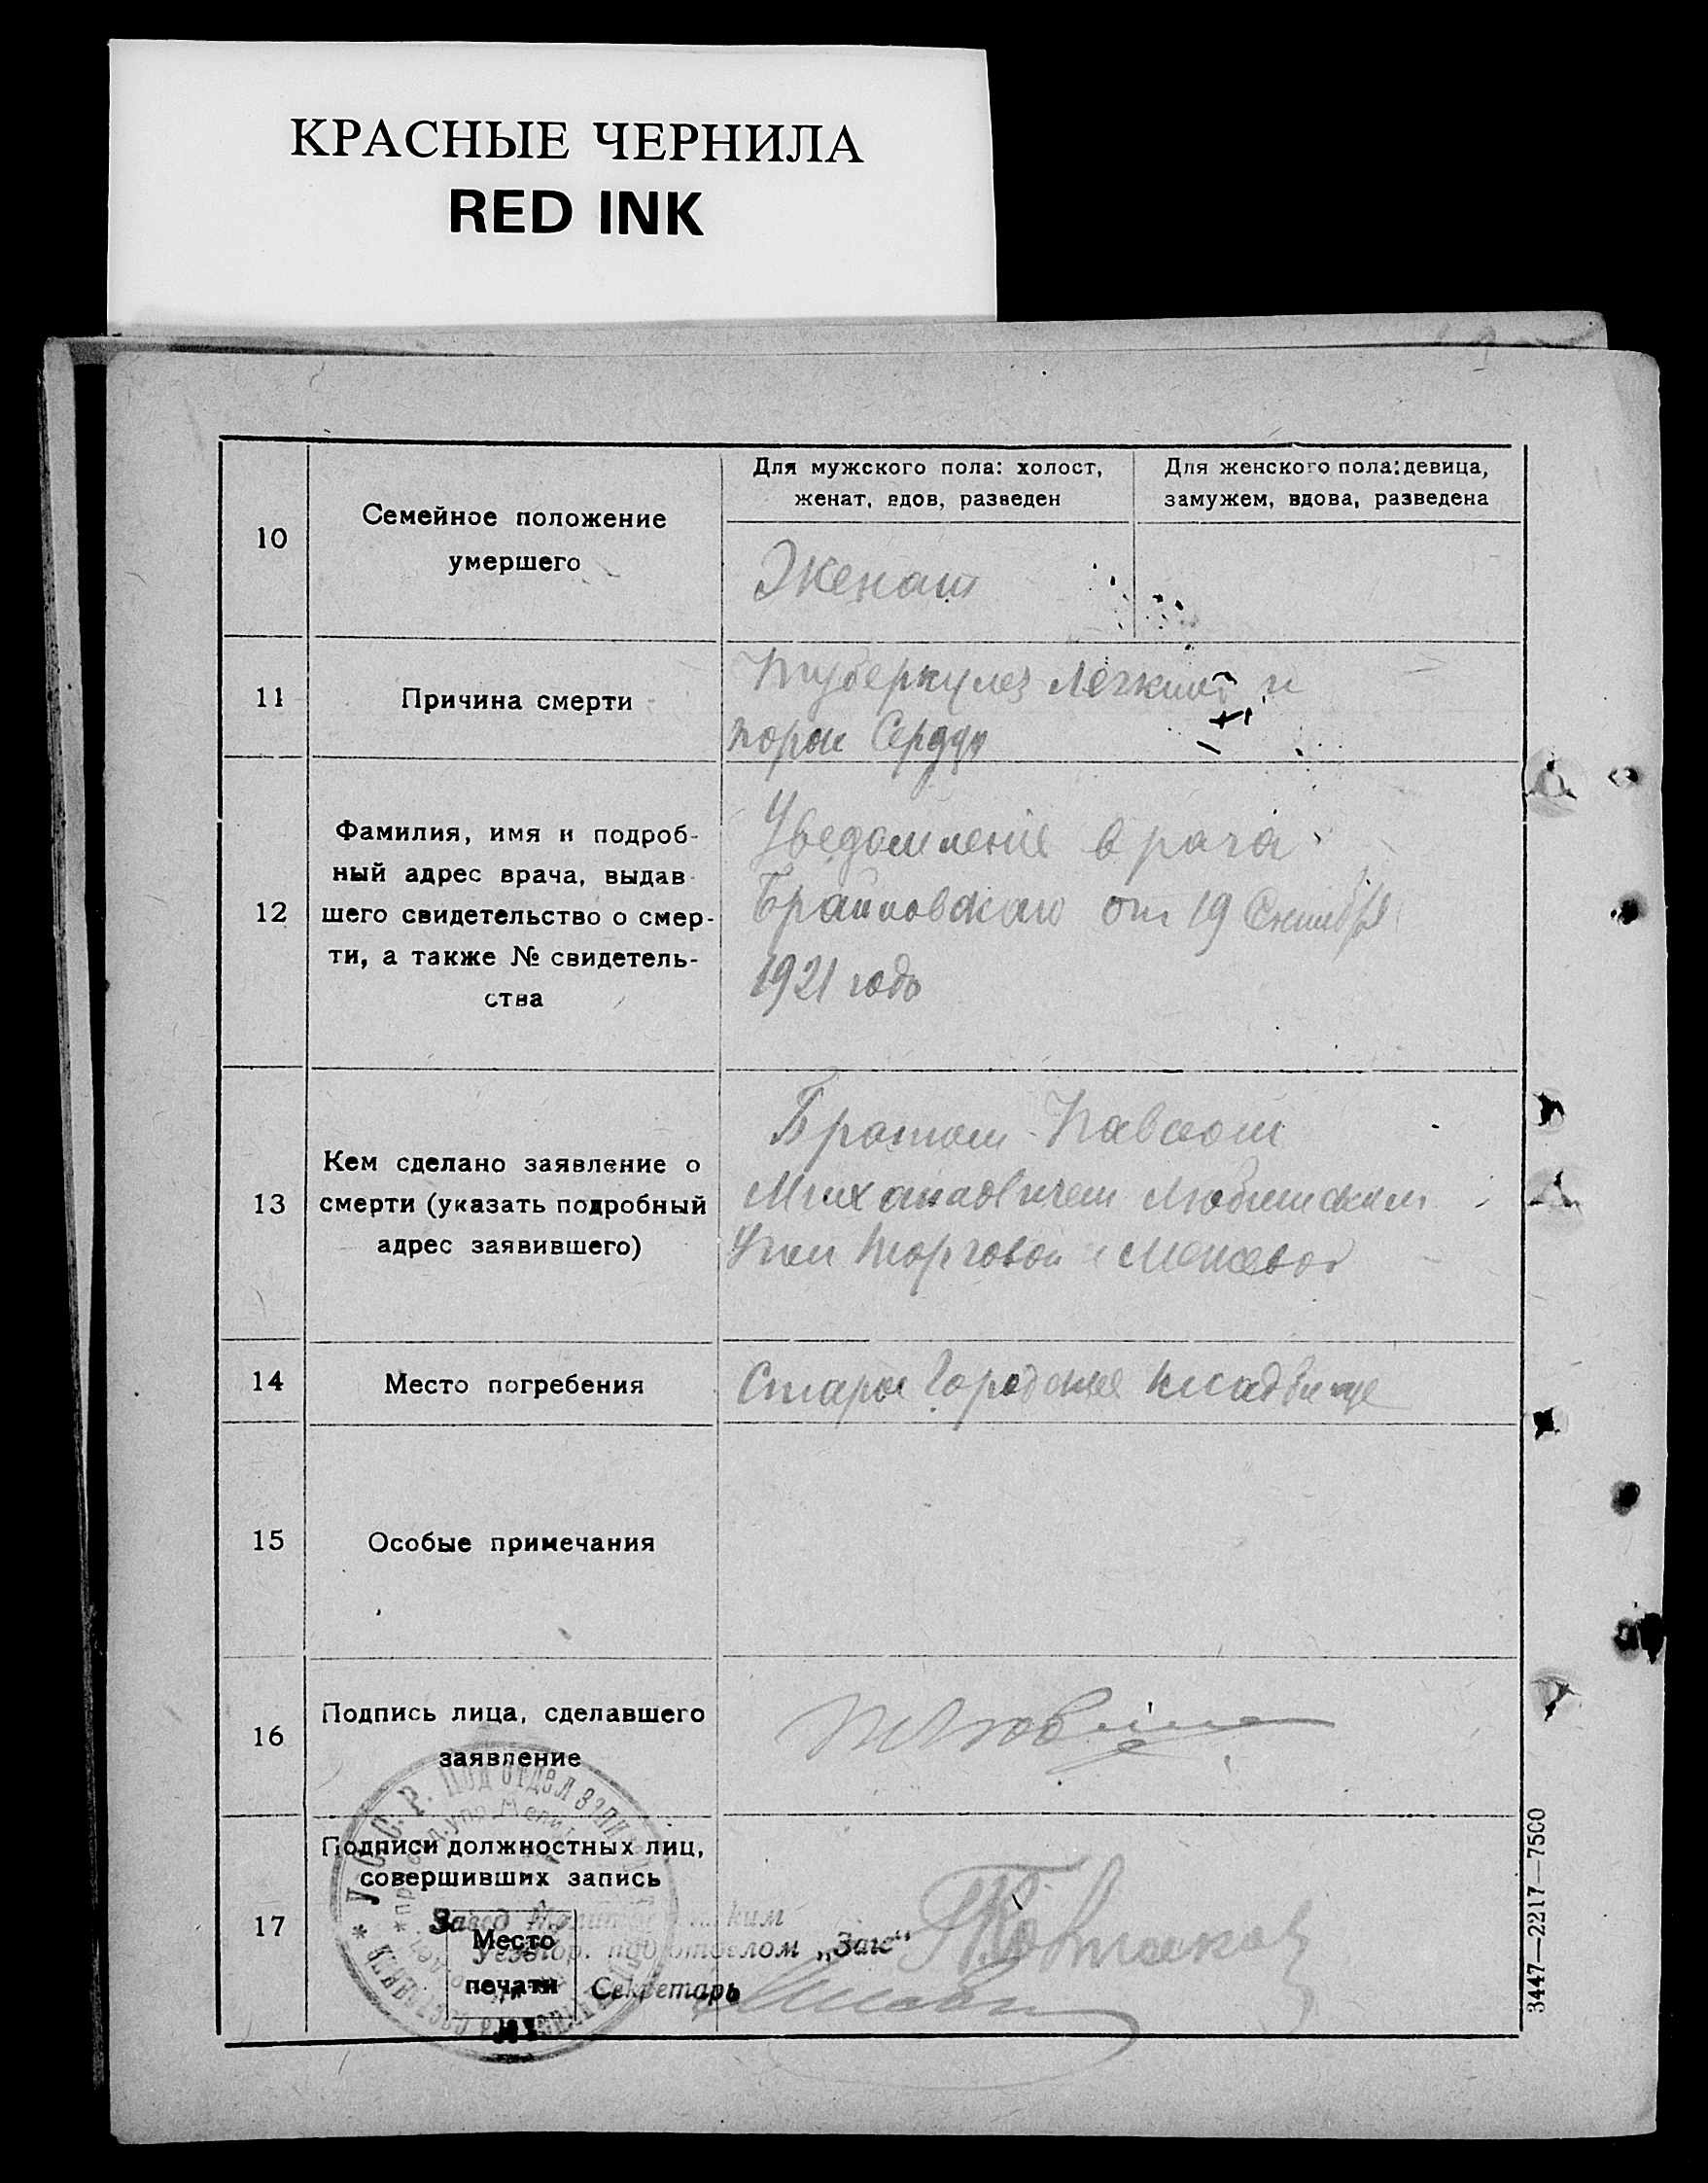 КРАСНЫЕ ЧЕРНИЛА
RED INK
10
Семейное положение
умершего
Для мужского пола: холост,
женат, вдов, разведен
Для женского пола: девица,
замужем, вдова, разведена
Женат
11
Причина смерти
Туберкулез Легких и
порок Сердца
12
Фамилия, имя и подроб-
ный адрес врача, выдав-
шего свидетельство о смер-
ти, а также № свидетель-
ства
Уведомление врача
от 19
1921 года
13
Кем сделано заявление о
смерти (указать подробный
адрес заявившего)
Братом Павлом
Михайловичем
Угол Торговой и
14
Место погребения
Старое Городское кладбище
15
Особые примечания
16
Подпись лица, сделавшего
заявление
17
Подписи должностных лиц,
совершивших запись
Место
печати
Завед
подотделом „Загс“
Секретарь
У. С. С. Р. Подотдел записи
3447—2217—7500